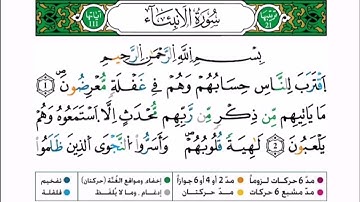 سُورَةُ الأَنبِيَاءِ
بِسْمِ اللَّهِ الرَّحْمَٰنِ الرَّحِيمِ
اقْتَرَبَ لِلنَّاسِ حِسَابُهُمْ وَهُمْ فِي غَفْلَةٍ مُّعْرِضُونَ ١
مَا يَأْتِيهِم مِّن ذِكْرٍ مِّن رَّبِّهِم مُّحْدَثٍ إِلَّا اسْتَمَعُوهُ وَهُمْ
يَلْعَبُونَ ٢ لَاهِيَةً قُلُوبُهُمْ وَأَسَرُّوا النَّجْوَى الَّذِينَ ظَلَمُوا
مدّ 6 حركات لزوماً مدّ 2 أو 4 أو 6 جوازاً إخفاء، ومواقع الغُنَّة (حركتان) تفخيم
مدّ مشبع 6 حركات مدّ حركتان إدغام، وما لا يُلفظ قلقلة